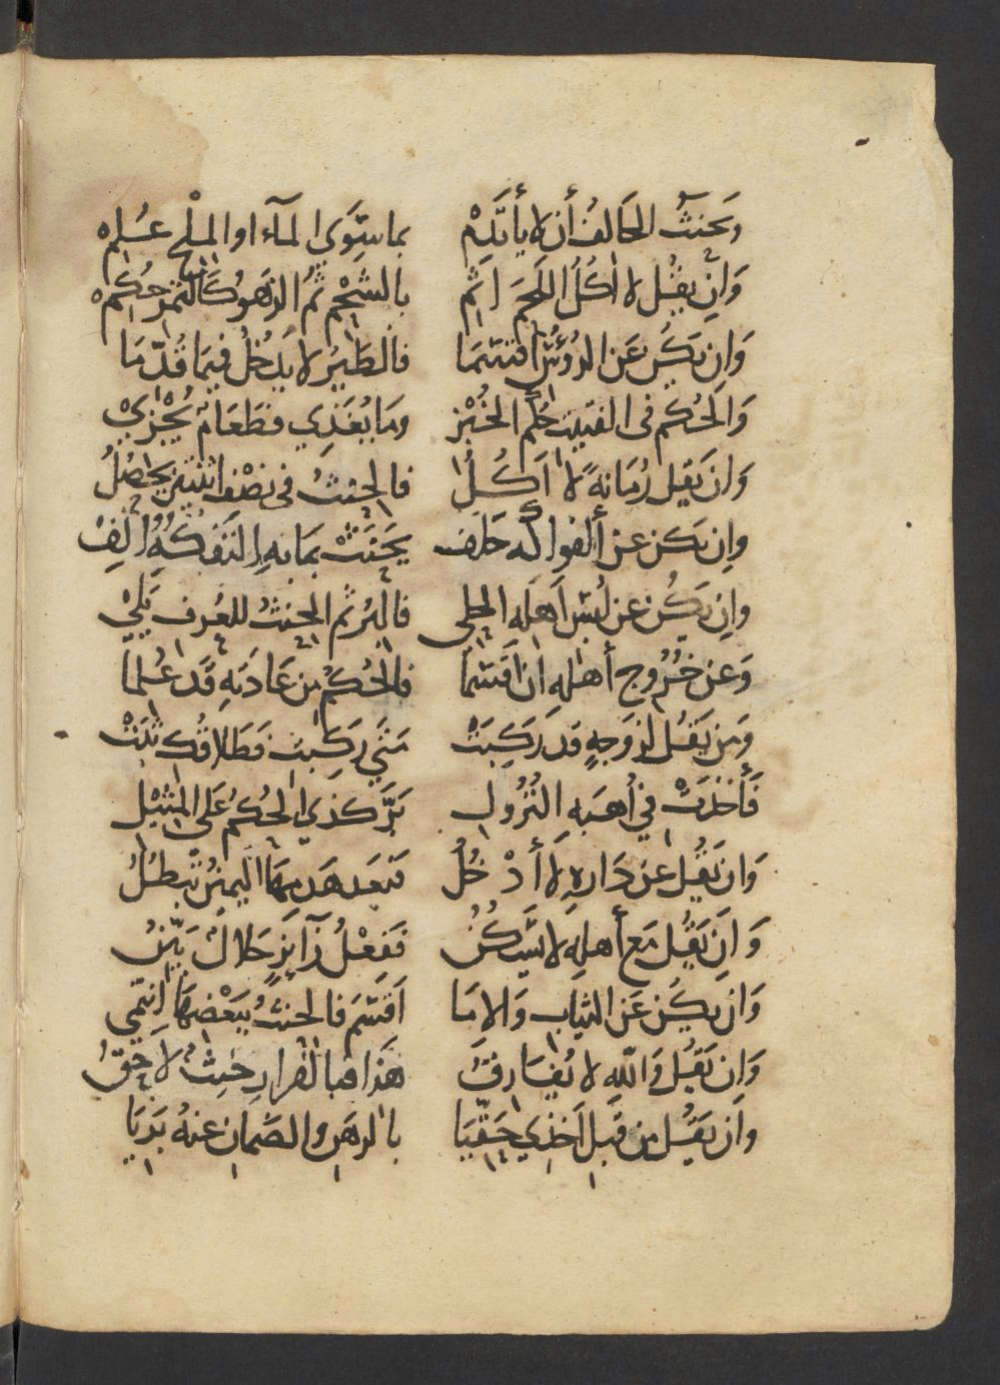 وحنث الحالف أن لا يأتدم بما سوى الماء او الملح علم
وان يقل لا اكل اللحم اثم بالشحم ثم الزهو كالتمر حكم
وان يكن عن الرؤس اقتسما فالطير لا يدخل فيما قدما
والحكم في الفتيت حكم الخبز وما يغذي فطعام يجزي
وان يقل رمانة لا اكل فالحنث في نصف اثنتين يحصل
وان يكن عن الفواكه حلف يحنث بما به التفكه الف
وان يكن عن لبس اهله الحلي فالبر ثم الحنث للعرف يلي
وعن خروج أهله ان اقسما فالحكم من عادته قد علما
ومن يقل لزوجه قد ركبت متى ركبت فطلاقك ثبت
فأخذت في أهبة النزول بر كذي الحكم على المثيل
وان يقل عن داره لا أدخل فبعد هدمها اليمين تبطل
وان يقل مع أهله لا يسكن ففعل زائر حلال بين
وان يكن عن الثياب والاما اقسم فالحنث ببعضها انتمي
وان يقل والله لا يفارق هذا فبالفرار حنث لاحق
وان يقل من قبل اخذي حقيا بالرهن والضمان عنه بريا